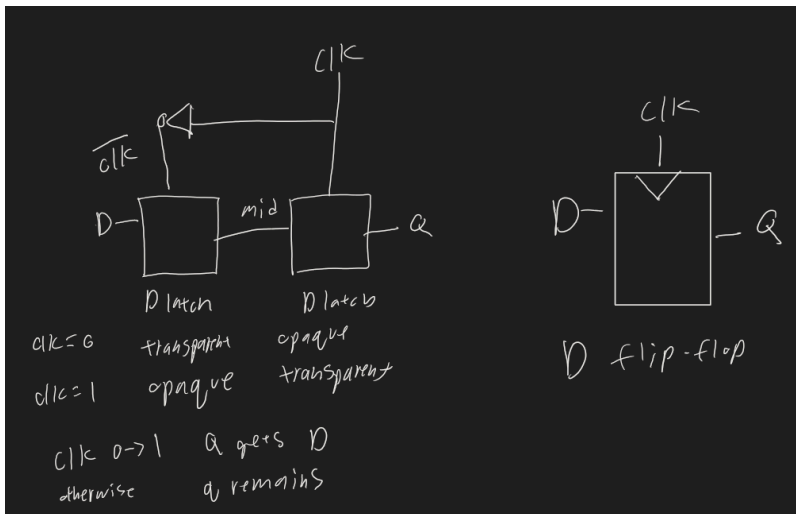 Clk
clk
D
mid
Q
D latch
D latch
clk=0 transparent opaque
clk=1 opaque transparent
Clk 0→1 Q gets D
otherwise q remains
Clk
D
Q
D flip-flop